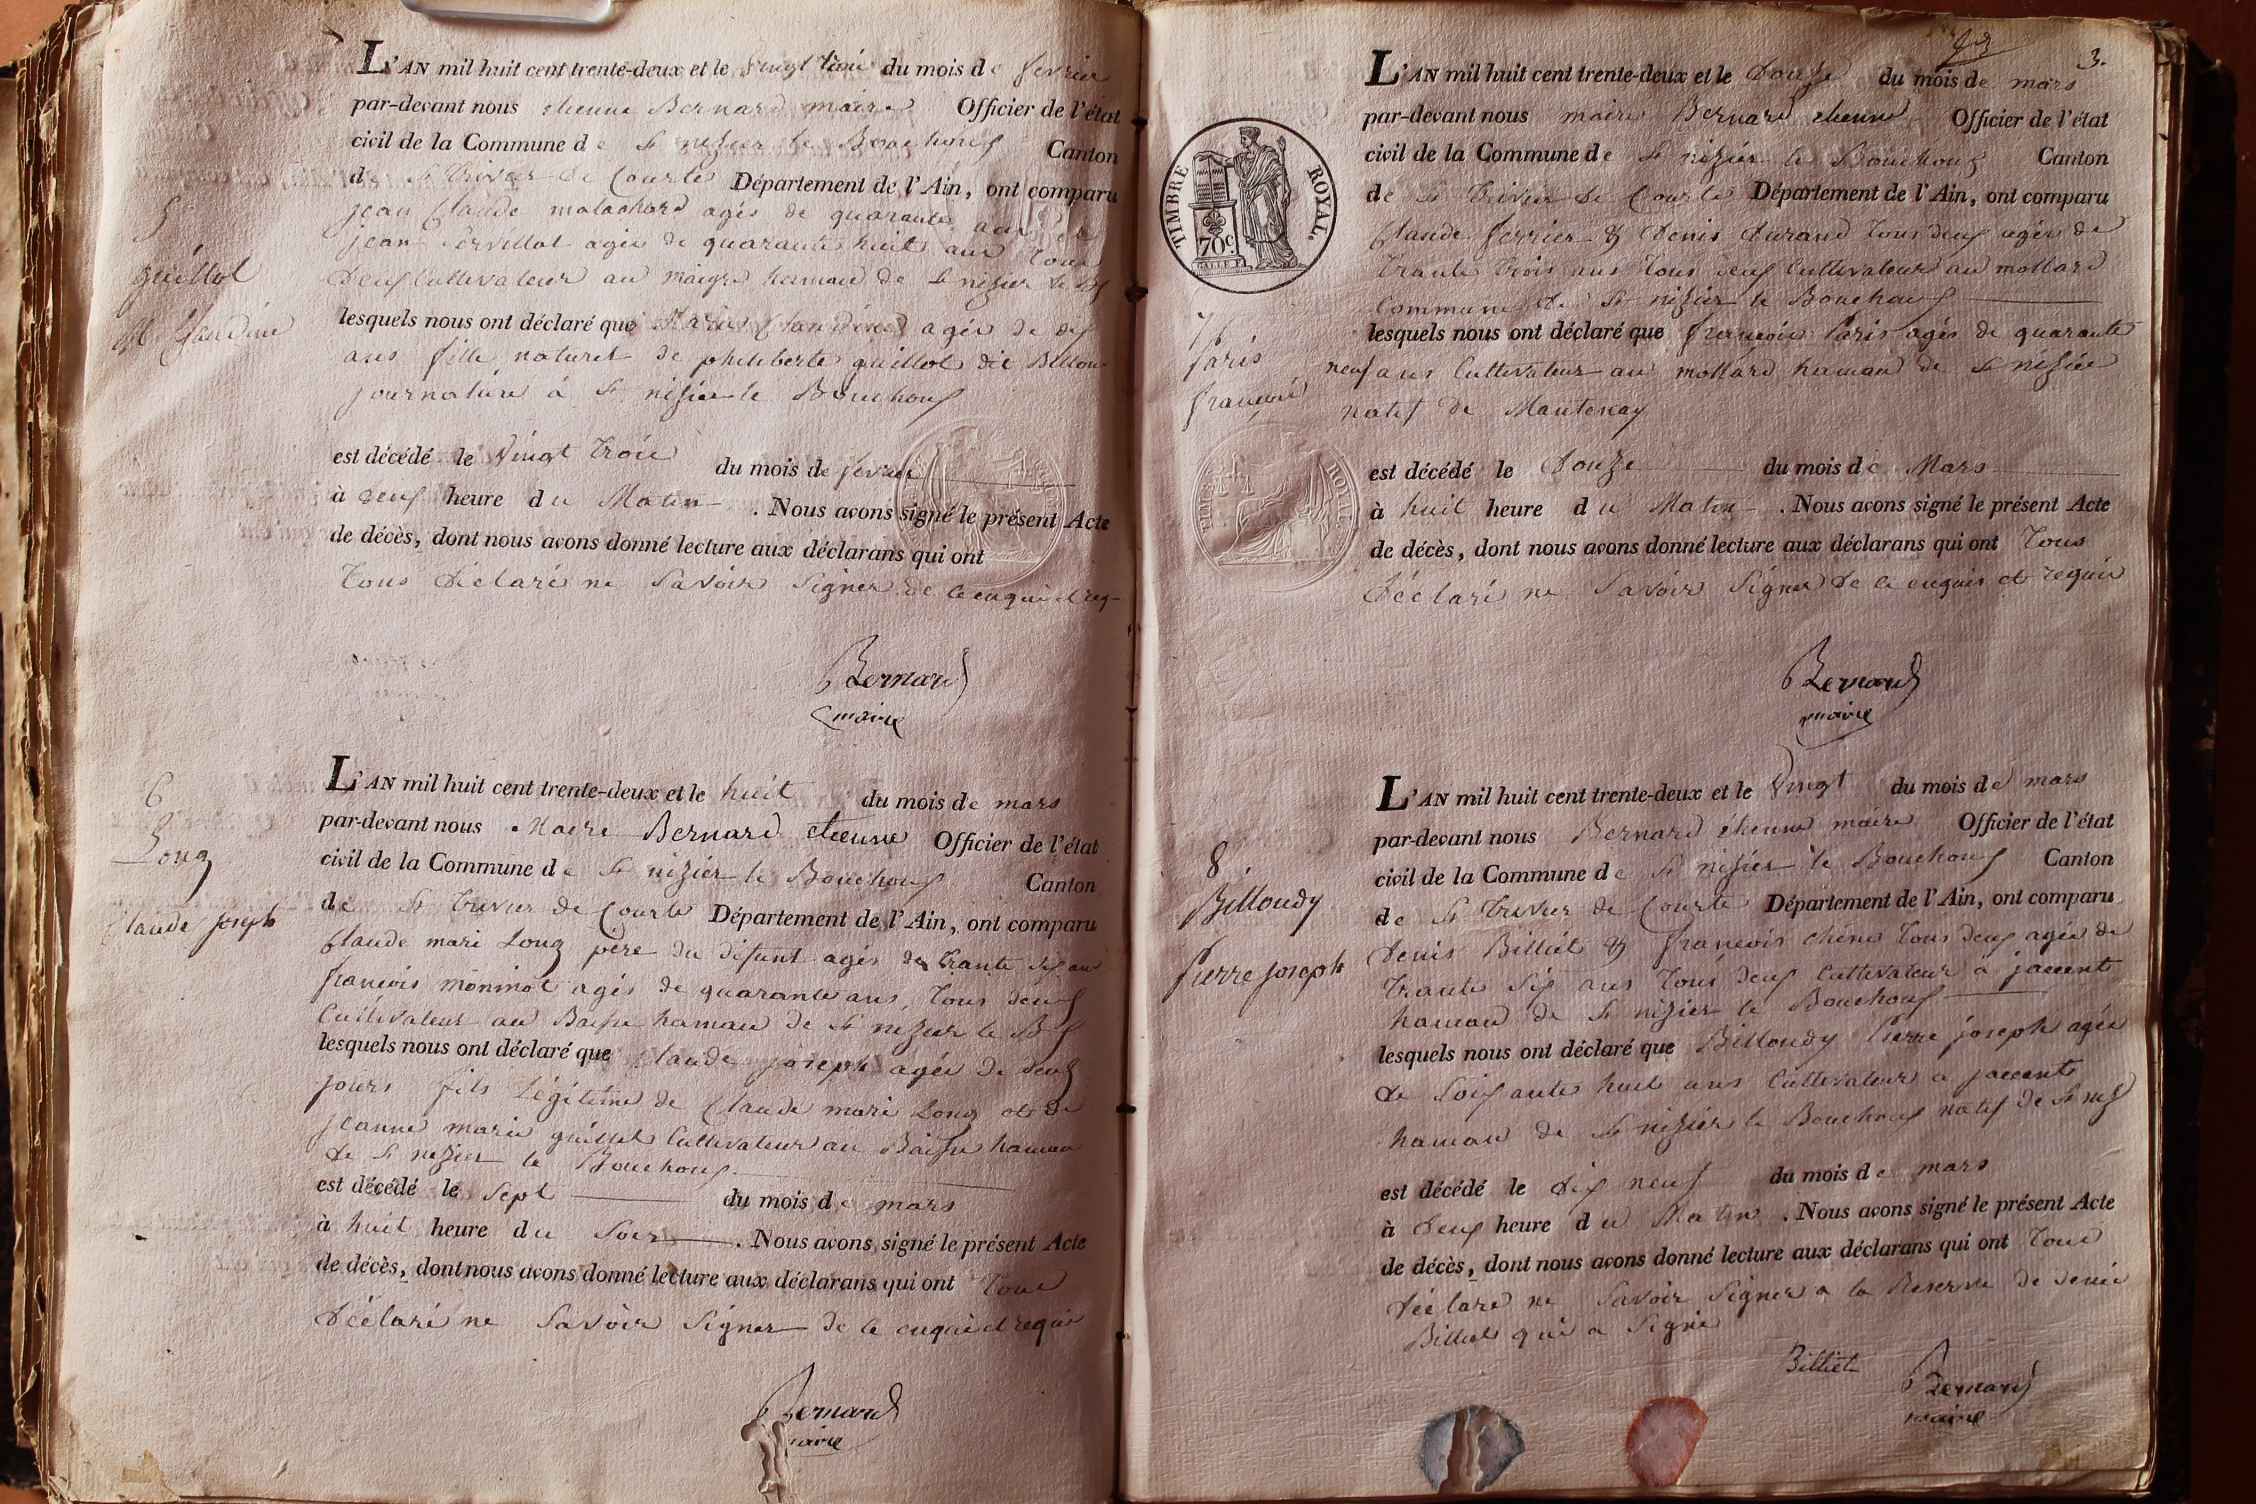 5
guillot
M. Claudine
L'AN mil huit cent trente-deux et le vingt trois du mois de fevrier
par-devant nous etienne Bernard maire Officier de l'état
civil de la Commune de St nizier le Bouchoux Canton
de St Trivier de Courte Département de l'Ain, ont comparu
jean Claude malachard agés de quarante ans et
jean servillat agés de quarante huit ans tous
deux Cultivateur au maigre hamau de St nizier le Bx
lesquels nous ont déclaré que Marie Claudine agée de dix
ans fille naturel de philiberte guillot dit Billon
journaliere à St nizier le Bouchoux
est décédé le Vingt trois du mois de fevrier
à deux heure du Matin . Nous avons signé le présent Acte
de décès, dont nous avons donné lecture aux déclarans qui ont
tous déclaré ne savoir signer de ce enquis et req-
Bernard
maire
6
Long
Claude joseph
L'AN mil huit cent trente-deux et le huit du mois de mars
par-devant nous Maire Bernard etienne Officier de l'état
civil de la Commune de St nizier le Bouchoux Canton
de St Trivier de Courte Département de l'Ain, ont comparu
Claude mari Long père du défunt agés de trante six ans
francois moninot agés de quarante ans, tous deux
Cultivateur au Baisse hamau de St nizier le Bx
lesquels nous ont déclaré que Claude joseph agée de deux
jours fils légitime de Claude mari Long et de
jeanne marie guillot Cultivateur au Baisse hamau
de St nizier le Bouchoux
est décédé le sept du mois de mars
à huit heure du soir . Nous avons signé le présent Acte
de décès, dont nous avons donné lecture aux déclarans qui ont tous
déclaré ne savoir signer de ce enquis et requis
Bernard
maire
3.
TIMBRE ROYAL.
70c
7
Paris
françois
L'AN mil huit cent trente-deux et le Douze du mois de mars
par-devant nous maire Bernard etienne Officier de l'état
civil de la Commune de St nizier le Bouchoux Canton
de St Trivier de Courte Département de l'Ain, ont comparu
Claude ferrier & Denis Durand tous deux agés de
trante trois ans tous deux Cultivateur au mollard
Commune de St nizier le Bouchoux
lesquels nous ont déclaré que françois Paris agés de quarante
neuf ans Cultivateur au mollard hamau de St nizier
natif de Mantenay
est décédé le Douze du mois de Mars
à huit heure du Matin . Nous avons signé le présent Acte
de décès, dont nous avons donné lecture aux déclarans qui ont tous
déclaré ne savoir signer de ce enquis et requis
Bernard
maire
8.
Billoudy
Pierre joseph
L'AN mil huit cent trente-deux et le Vingt du mois de mars
par-devant nous Bernard étienne maire Officier de l'état
civil de la Commune de St nizier le Bouchoux Canton
de St Trivier de Courte Département de l'Ain, ont comparu
Denis Billiet & françois chêne tous deux agés de
trante six ans tous deux Cultivateur à jaccent
hamau de St nizier le Bouchoux
lesquels nous ont déclaré que Billoudy Pierre joseph agés
de soixante huit ans Cultivateur a jaccent
hamau de St nizier le Bouchoux natif de St
est décédé le dix neuf du mois de mars
à deux heure du Matin . Nous avons signé le présent Acte
de décès, dont nous avons donné lecture aux déclarans qui ont tous
déclaré ne savoir signer a la Reserve de denis
Billiet qui a signé
Billiet
Bernard
maire